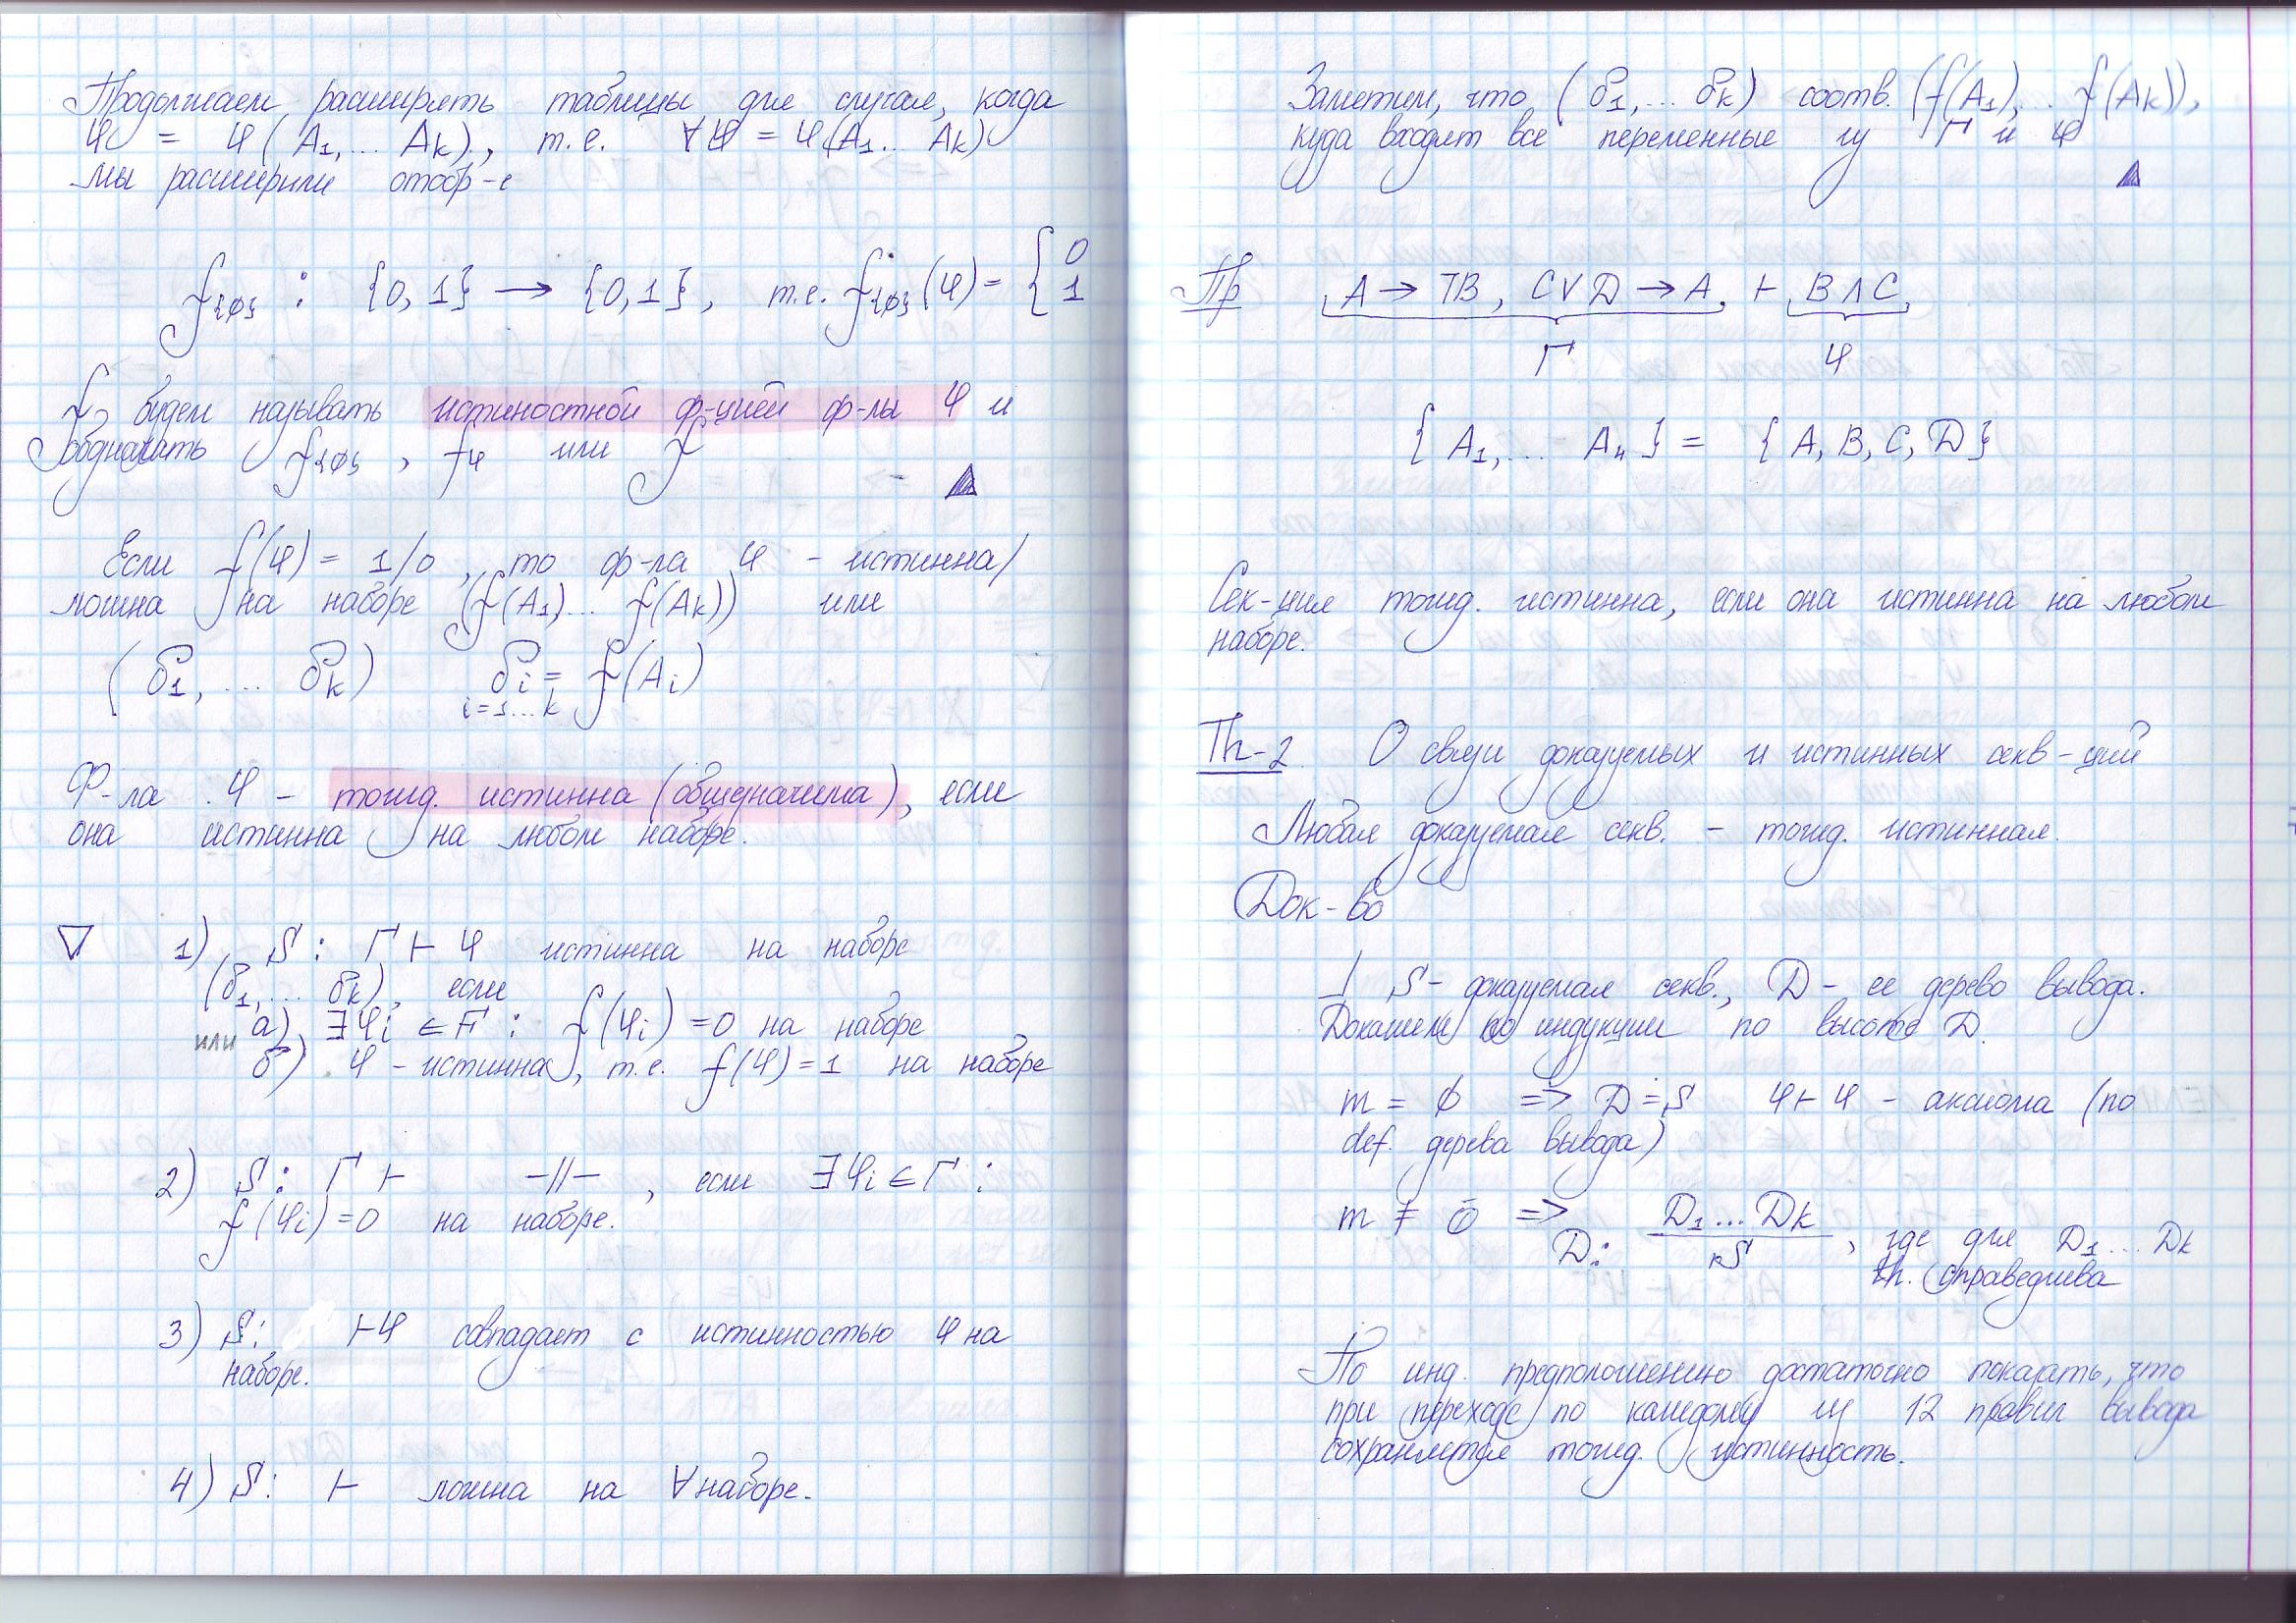 Продолжаем расширять таблицы для случая, когда
φ = φ(A₁, ... Aₖ), т.е. ∀φ = φ(A₁ ... Aₖ)
мы расширили отобр-е
f{φ} : {0, 1} → {0, 1}, т.е. f{φ}(φ) = { 0 1
f будем называть истиностной ф-цией ф-лы φ и
обозначать f{φ}, fφ или f
Если f(φ) = 1/0, то ф-ла φ - истинна/
ложна на наборе (f(A₁) ... f(Aₖ)) или
(δ₁, ... δₖ) δᵢ = f(Aᵢ)
i=1...k
Ф-ла φ - тожд. истинна (общезначима), если
она истинна на любом наборе.
▽ 1) S : Γ ⊢ φ истинна на наборе
(δ₁, ... δₖ), если
или а) ∃φᵢ ∈ Γ : f(φᵢ) = 0 на наборе
б) φ - истинна, т.е. f(φ) = 1 на наборе
2) S : Γ ⊢ -//- , если ∃φᵢ ∈ Γ :
f(φᵢ) = 0 на наборе.
3) S : ⊢ φ совпадает с истинностью φ на
наборе.
4) S : ⊢ ложна на ∀ наборе.
Заметим, что (δ₁, ... δₖ) соотв. (f(A₁), ... f(Aₖ)),
куда входят все переменные из Γ и φ
Пр A → ⌉B, C ∨ D → A, ⊢ B ∧ C,
Γ φ
{ A₁, ... A₄ } = { A, B, C, D }
Сек-ция тожд. истинна, если она истинна на любом
наборе.
Th-2 О связи доказуемых и истинных секв-ций
Любая доказуемая секв. - тожд. истинная.
Док-во
⊥ S - доказуемая секв., D - ее дерево вывода.
Докажем по индукции по высоте D.
m = 0 => D = S φ ⊢ φ - аксиома (по
def. дерева вывода)
m ≠ 0 => D : D₁ ... Dₖ / S , где для D₁ ... Dₖ
th. справедлива
По инд. предположению достаточно показать, что
при переходе по каждому из 12 правил вывода
сохраняется тожд. истинность.